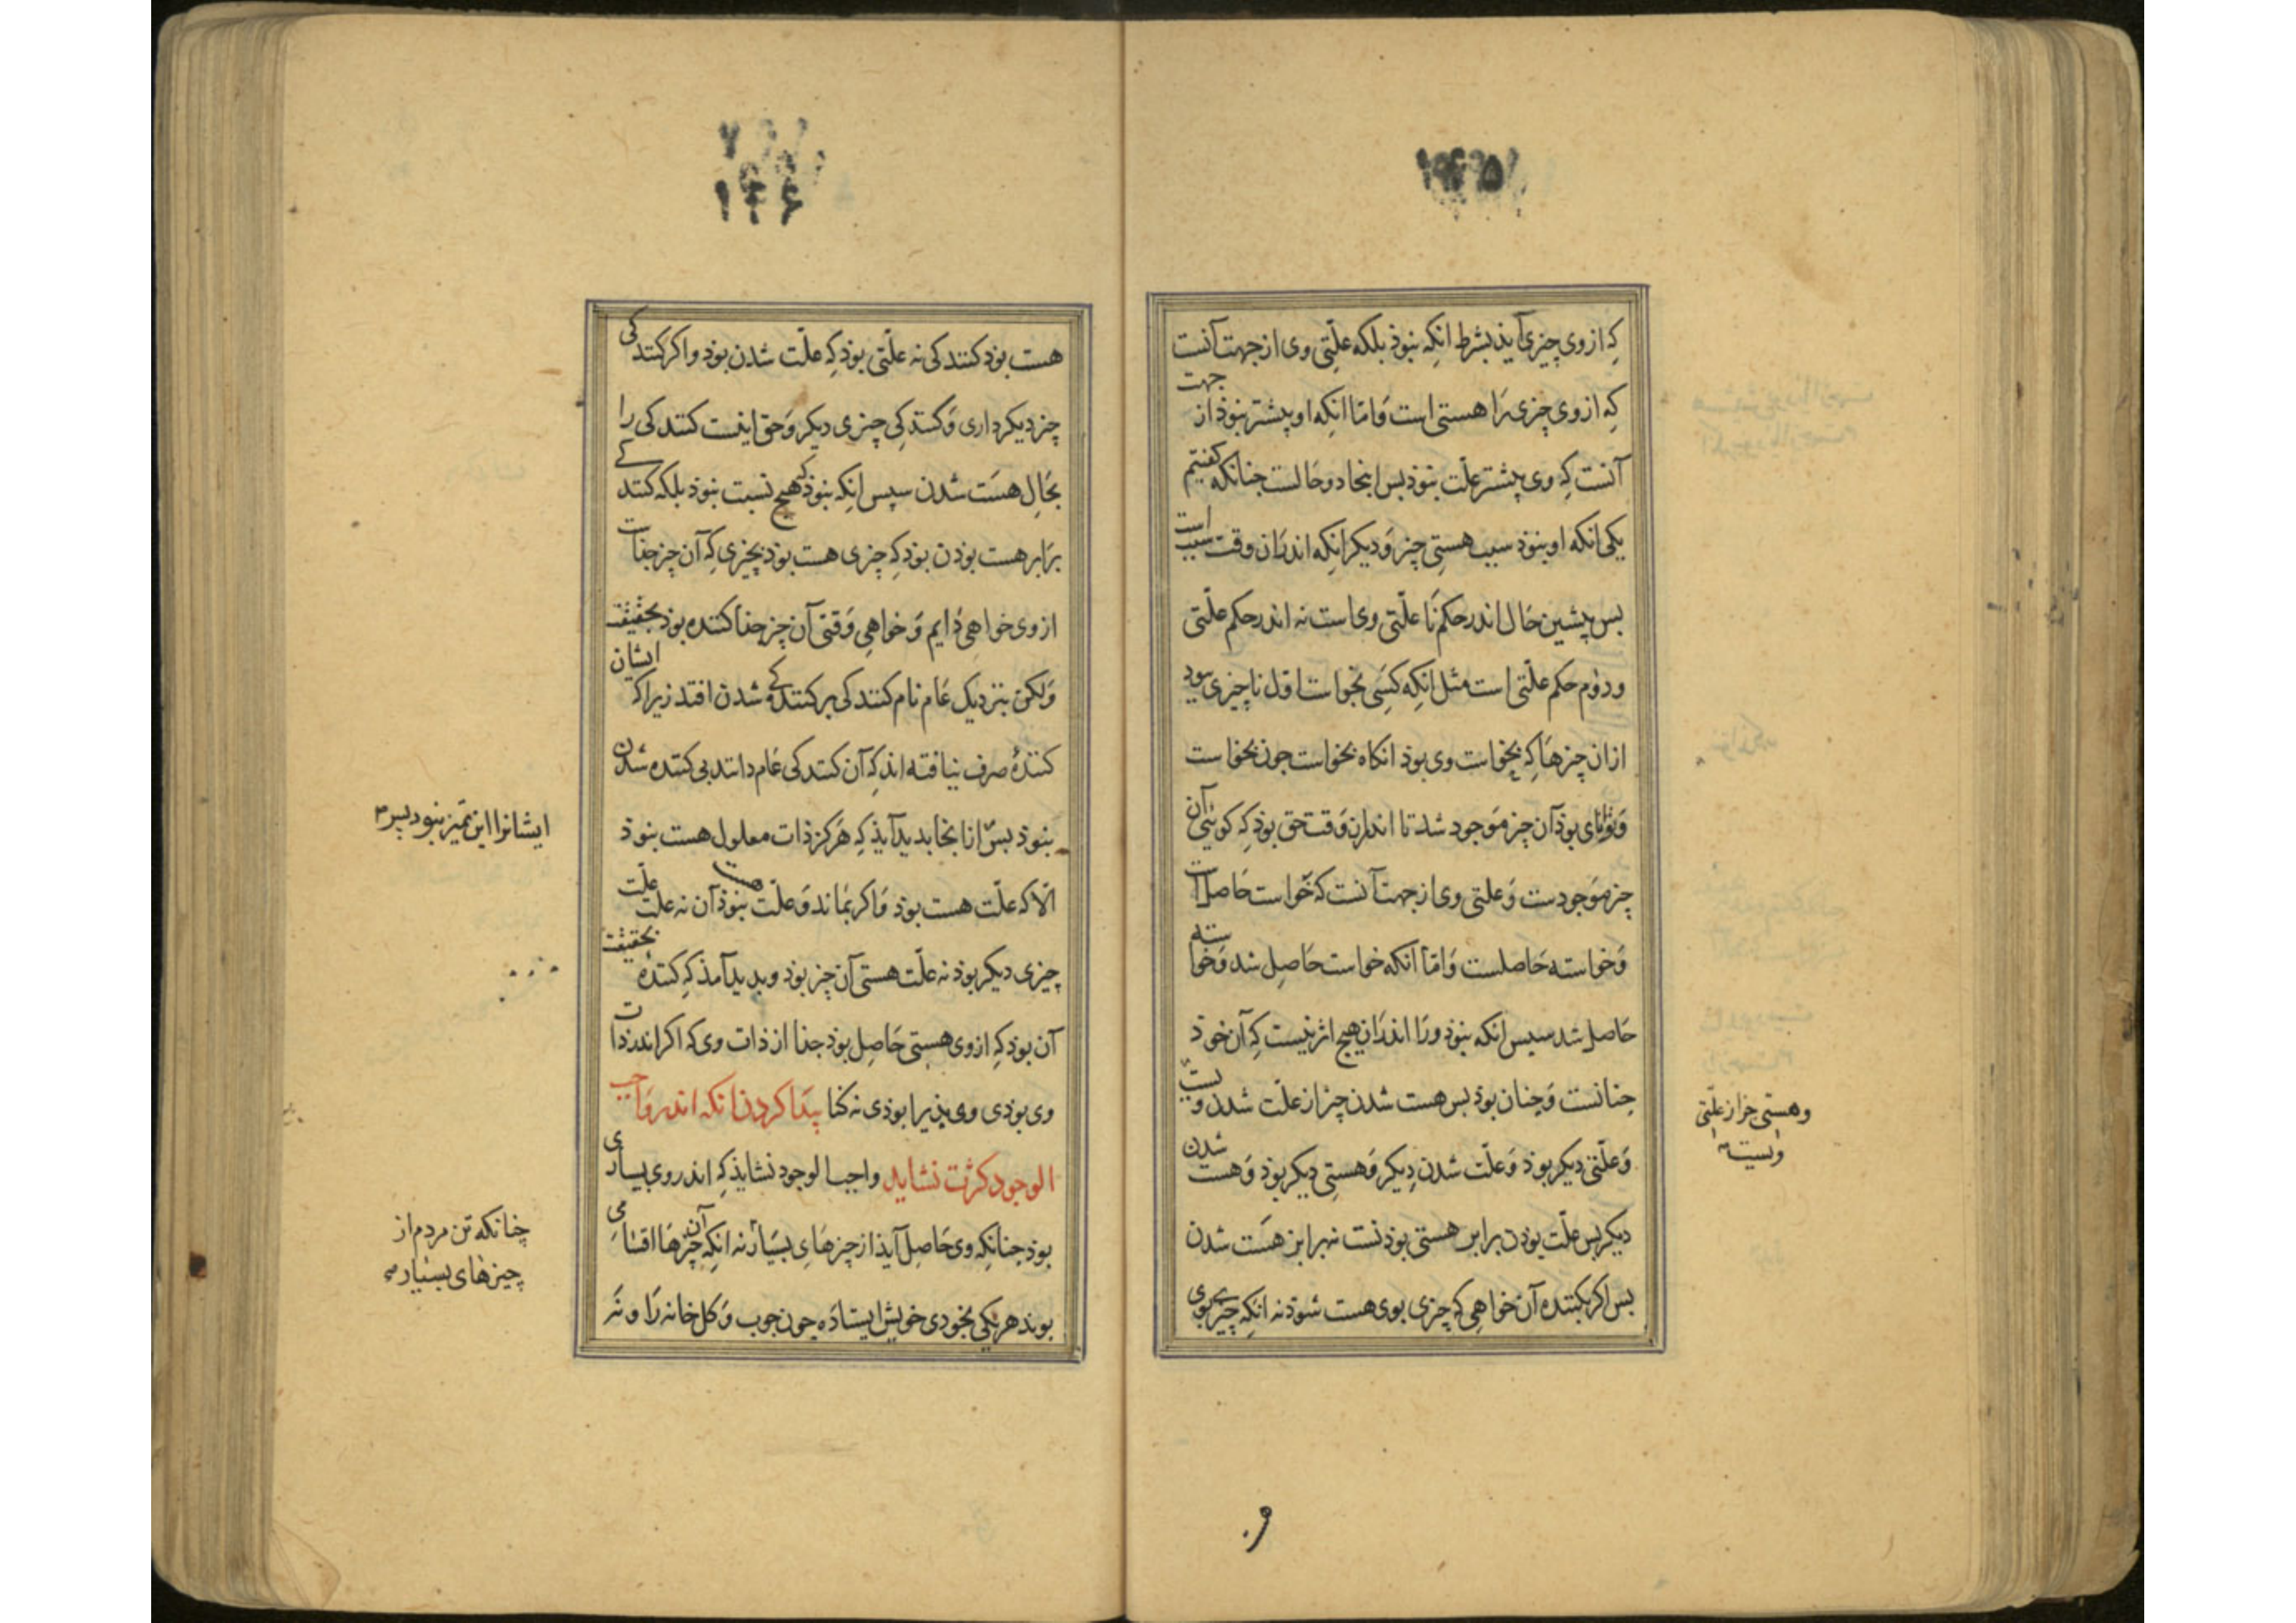 ۱۴۵
که از وی چیزی آید بشرط انکه نبوذ بلکه علّتی وی از جهت آنست
که از وی چیزی را هستی است وَامّا انکه او پیشتر نبوذ از جهت
آنست که وی پیشتر علّت نبوذ بس اینجا دو حالست جنانکه کفتیم
یکی انکه او بنوذ سبب هستی چیز وَدیکر انکه اندران وقت سبب است
بس پیشین حَال اندر حکم نَا علّتی وی است نه اندر حکم علّتی
ودوُم حکم علّتی است مثل انکه کَسی بخواست اوّل ناچیزی بود
ازان چیزهَا که بخواست وی بوذ انکاه بخواست جون بخواست
وَتوانای بوذ آن چیز مَوجود شد تا اندران وَقت حق بوذ که کوئی آن
چیز مَوجودست وَعلتی وی از جهت آنست که خواست حَاصل است
وَخواسته حَاصلست وَامّا انکه خواست حَاصل شد وَخواسته
حَاصل شد سپس انکه نبوذ ورَا اندرَان هیج اثر نیست که آن خوذ
جنانست وَجنان بوذ بس هست شدن چیز از علّت شدن و
وَعلّتی دیکر بوذ وَعلّت شدن دِیکر وَهستی دیکر بوذ وَهست شدن
دیکر بس علّت بوذن برابر هستی بوذنست نه برابر هَست شدن
بس اکر بکننده آن خواهی که چیزی بوی هست شوذ نه انکه چیزی بوی
وهستی چیز از علّتی
و.
۱۴۶
هست بوذ کنندکی نه علّتی بوذ که علّت شدن بوذ واکر کنندکی
چیز دیکر داری وَکنندکی چیزی دیکر وَحق اینست کنندکی را
بحَال هسَت شدن سپس انکه نبوذ هیچ نسبت نبوذ بلکه کنندکی
برَابر هست بوذن بوذ که چیزی هست بوذ بچیزی که آن چیز جذاست
از وی خواهی دَایم وَخواهی وَقتی آن چیز جذا کننده بوذ بحقیقت
وَلکن بنزدیک عَام نام کنندکی بر کنندکی شدن افتد زیراکه ایشان
کنندهٔ صرف نیافته اند که آن کنندکی عَام دانند بی کننده شدن
بنوذ بس ازاینجا بدید آید که هَرکز ذات معلول هست بنوذ
الّا که علّت هست بوذ وَاکر بمَاند وَعلّت نبوذ آن نه علّت علّت
چیزی دیکر بوذ نه علّت هستی آن چیز بوذ وبدید آمذ که کننده بحقیقت
آن بوذ که از وی هستی حَاصِل بوذ جذا از ذات وی که اکر اندر ذات
وی بوذی وی پذیرا بوذی نه کنا پیَدا کردن انکه اندر وَاجب
الوجود کثرت نشاید واجب الوجود نشایذ که اندر وی بسیاری
بوذ جنانکه وی حَاصل آیذ از چیزهَای بسیَار نه انکه آن چیزهَا اقسامی
بوند هر یکی بخودی خویش ایستادَه جون جوب وَکل خانه رَا و نه
ایشانرا این تمیز نبود
چنانکه تن مردم از
چیزهای بسیار